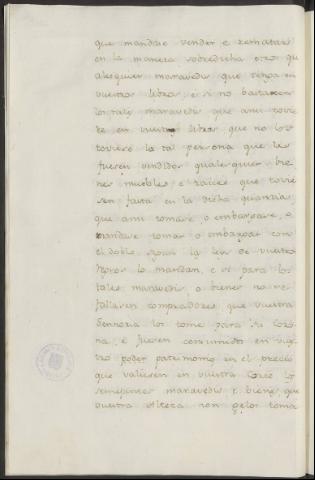 que mandase vender e rematase
en la manera sobredicha otros qu
alesquier maravedis que tenga en
vuestros libros e si no bastaren
los tales maravedis que ansi tovie
re en vuestros libros que no los
toviere la tal persona que les
fuesen vendidos qualesquier bie
nes muebles e raices que tovie
sen fasta en la dicha quantia
que ansi tomase o embargase, o
mandase tomar o embargar con
el doblo segun la ley de vuestro
Reyno lo mandan, e si para los
tales maravedis o bienes no se
fallaren compradores que vuestra
Sennoria los tome para su Coro
na, e fuesen consumidos en vues
tro poder patrimonio en el precio
que valiesen en vuestra Corte los
semejantes maravedis e bienes que
vuestra Alteza non gelos torna